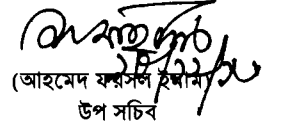 (আহমেদ ফয়সল ইমাম)
উপ সচিব